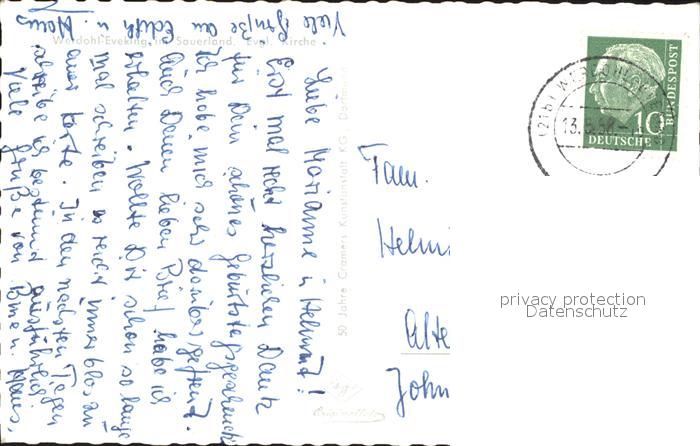 Werdohl-Eveking im Sauerland. Evgl. Kirche
Liebe Marianne u Helmut!
Erst mal recht herzlichen Dank
für Dein schönes Geburtstagsgeschenk
Ich habe mich sehr darüber gefreut.
Auch Deinen lieben Brief habe ich
erhalten. Wollte Dir schon so lange
mal schreiben es reicht immer blos zu
einer Karte. In den nächsten Tagen
schreibe ich bestimmt ausführlich
Viele Grüße von
Viele Grüße an Edith u Hans
50 Jahre Cramers Kunstanstalt KG. Dortmund
Fam.
Helm
Alte
John
(21b) WERDOHL
13.5.58
10
DEUTSCHE
BUNDESPOST
privacy protection
Datenschutz